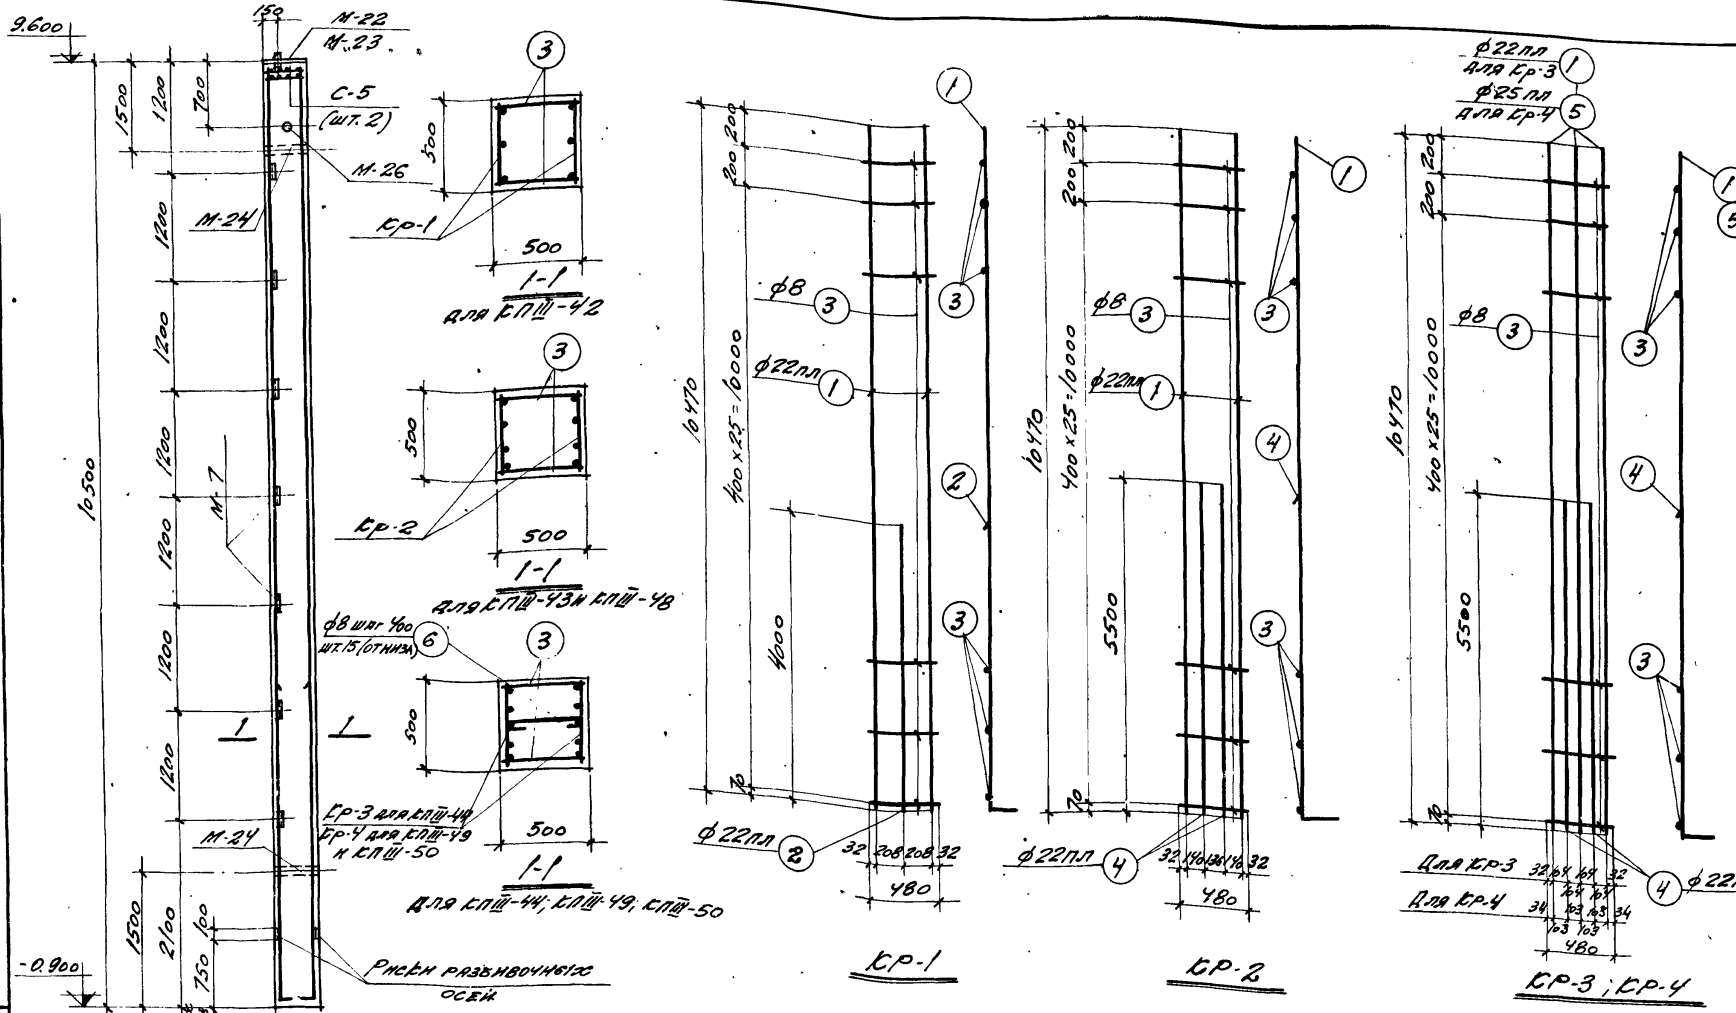 9.600
150
М-22
М-23
1500
1200
700
С-5
(шт. 2)
М-26
М-24
1200
1200
1200
1200
1200
1200
10500
М-7
1
1
М-24
1500
2100
100
750
-0.900
Риски разбивочных
осей
3
500
Кр-1
500
1-1
для КПIII-42
3
500
Кр-2
500
1-1
для КПIII-43 и КПIII-48
ф8 шаг 400
шт.15 (от низа)
6
3
500
Кр-3 для КПIII-44
Кр-4 для КПIII-49
и КПIII-50
500
1-1
для КПIII-44; КПIII-49; КПIII-50
1
200
200
ф8
3
3
ф22пл
1
10470
400х25=10000
2
4000
3
70
ф22пл
2
32 208 208 32
480
КР-1
200
200
1
ф8
3
3
ф22пл
1
10470
400х25=10000
4
5500
3
70
ф22пл
4
32 140 136 140 32
480
КР-2
ф22пл
для Кр-3
1
ф25пл
для Кр-4
5
200
200
1
5
ф8
3
3
10470
400х25=10000
4
5500
3
70
Для КР-3 32 104 104 32
104 104
Для КР-4 34 103 103 34
103 103
480
4
ф22
КР-3; КР-4